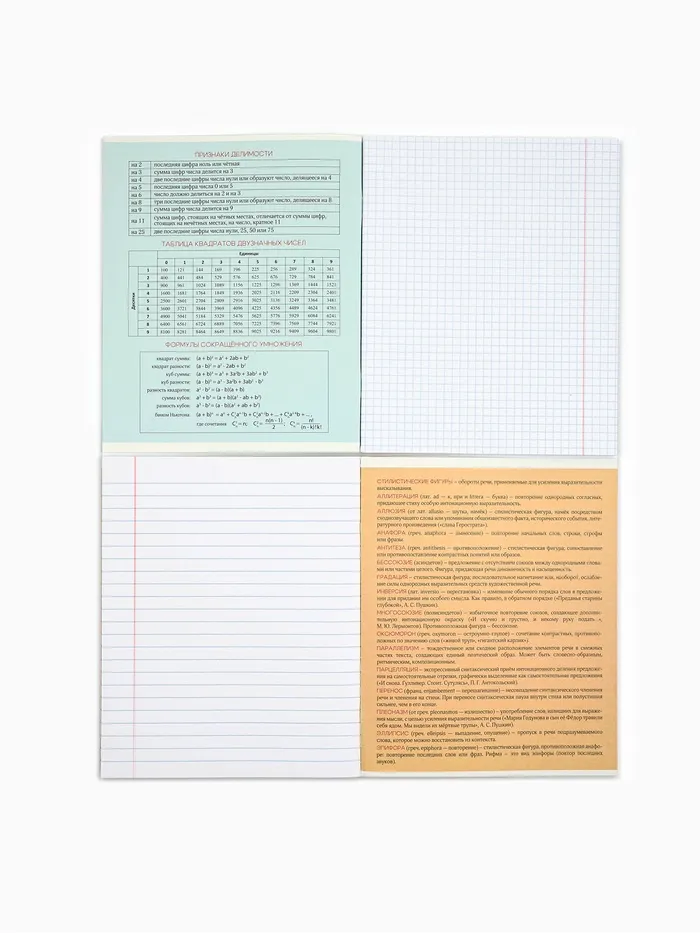 ПРИЗНАКИ ДЕЛИМОСТИ
на 2 последняя цифра ноль или чётная
на 3 сумма цифр числа делится на 3
на 4 две последние цифры числа нули или образуют число, делящееся на 4
на 5 последняя цифра числа 0 или 5
на 6 число должно делиться на 2 и на 3
на 8 три последние цифры числа нули или образуют число, делящееся на 8
на 9 сумма цифр числа делится на 9
на 11 сумма цифр, стоящих на чётных местах, отличается от суммы цифр,
стоящих на нечётных местах, на число, кратное 11
на 25 две последние цифры числа нули, 25, 50 или 75
ТАБЛИЦА КВАДРАТОВ ДВУЗНАЧНЫХ ЧИСЕЛ
Единицы
Десятки
0 1 2 3 4 5 6 7 8 9
1 100 121 144 169 196 225 256 289 324 361
2 400 441 484 529 576 625 676 729 784 841
3 900 961 1024 1089 1156 1225 1296 1369 1444 1521
4 1600 1681 1764 1849 1936 2025 2116 2209 2304 2401
5 2500 2601 2704 2809 2916 3025 3136 3249 3364 3481
6 3600 3721 3844 3969 4096 4225 4356 4489 4624 4761
7 4900 5041 5184 5329 5476 5625 5776 5929 6084 6241
8 6400 6561 6724 6889 7056 7225 7396 7569 7744 7921
9 8100 8281 8464 8649 8836 9025 9216 9409 9604 9801
ФОРМУЛЫ СОКРАЩЁННОГО УМНОЖЕНИЯ
квадрат суммы: (a + b)² = a² + 2ab + b²
квадрат разности: (a - b)² = a² - 2ab + b²
куб суммы: (a + b)³ = a³ + 3a²b + 3ab² + b³
куб разности: (a - b)³ = a³ - 3a²b + 3ab² - b³
разность квадратов: a² - b² = (a - b)(a + b)
сумма кубов: a³ + b³ = (a + b)(a² - ab + b²)
разность кубов: a³ - b³ = (a - b)(a² + ab + b²)
Бином Ньютона: (a + b)ⁿ = aⁿ + C¹ₙaⁿ⁻¹b + C²ₙaⁿ⁻²b² + ... + Cᵏₙaⁿ⁻ᵏbᵏ + ... ,
где сочетания C¹ₙ = n; C²ₙ = n(n - 1)/2; Cᵏₙ = n!/(n - k)! k!
СТИЛИСТИЧЕСКИЕ ФИГУРЫ – обороты речи, применяемые для усиления выразительности
высказывания.
АЛЛИТЕРАЦИЯ (лат. ad — к, при и littera — буква) – повторение однородных согласных,
придающее стиху особую интонационную выразительность.
АЛЛЮЗИЯ (от лат. allusio — шутка, намёк) – стилистическая фигура, намёк посредством
сходнозвучащего слова или упоминания общеизвестного факта, исторического события, лите-
ратурного произведения («слава Герострата»).
АНАФОРА (греч. anaphora — вынесение) – повторение начальных слов, строки, строфы
или фразы.
АНТИТЕЗА (греч. antithesis — противоположение) – стилистическая фигура, сопоставление
или противопоставление контрастных понятий или образов.
БЕССОЮЗИЕ (асиндетон) – предложение с отсутствием союзов между однородными слова-
ми или частями целого. Фигура, придающая речи динамичность и насыщенность.
ГРАДАЦИЯ – стилистическая фигура, последовательное нагнетание или, наоборот, ослабле-
ние силы однородных выразительных средств художественной речи.
ИНВЕРСИЯ (лат. inversia — перестановка) – изменение обычного порядка слов в предложе-
нии для придания им особого смысла. Как правило, в обратном порядке («Преданья старины
глубокой», А. С. Пушкин).
МНОГОСОЮЗИЕ (полисиндетон) – избыточное повторение союзов, создающее дополни-
тельную интонационную окраску («И скучно и грустно, и некому руку подать...»,
М. Ю. Лермонтов). Противоположная фигура – бессоюзие.
ОКСЮМОРОН (греч. oxymoron — остроумно-глупое) – сочетание контрастных, противопо-
ложных по значению слов («живой труп», «гигантский карлик»).
ПАРАЛЛЕЛИЗМ – тождественное или сходное расположение элементов речи в смежных
частях текста, создающих единый поэтический образ. Может быть словесно-образным,
ритмическим, композиционным.
ПАРЦЕЛЛЯЦИЯ – экспрессивный синтаксический приём интонационного деления предложе-
ния на самостоятельные отрезки, графически выделенные как самостоятельные предложения
(«И снова. Гулливер. Стоит. Сутулясь», П. Г. Антокольский).
ПЕРЕНОС (франц. enjambement — перешагивание) – несовпадение синтаксического членения
речи и членения на стихи. При переносе синтаксическая пауза внутри стиха или полустишия
сильнее, чем в его конце.
ПЛЕОНАЗМ (от греч. pleonasmos — излишество) – употребление слов, излишних для выраже-
ния мысли, с целью усиления выразительности речи («Мария Годунова и сын её Фёдор травили
себя ядом. Мы видели их мёртвые трупы», А. С. Пушкин).
ЭЛЛИПСИС (греч. elleipsis — выпадение, опущение) – пропуск в речи подразумеваемого
слова, которое можно восстановить из контекста.
ЭПИФОРА (греч. epiphora — повторение) – стилистическая фигура, противоположная анафо-
ре: повторение последних слов или фраз. Рифма – это вид эпифоры (повтор последних
звуков).